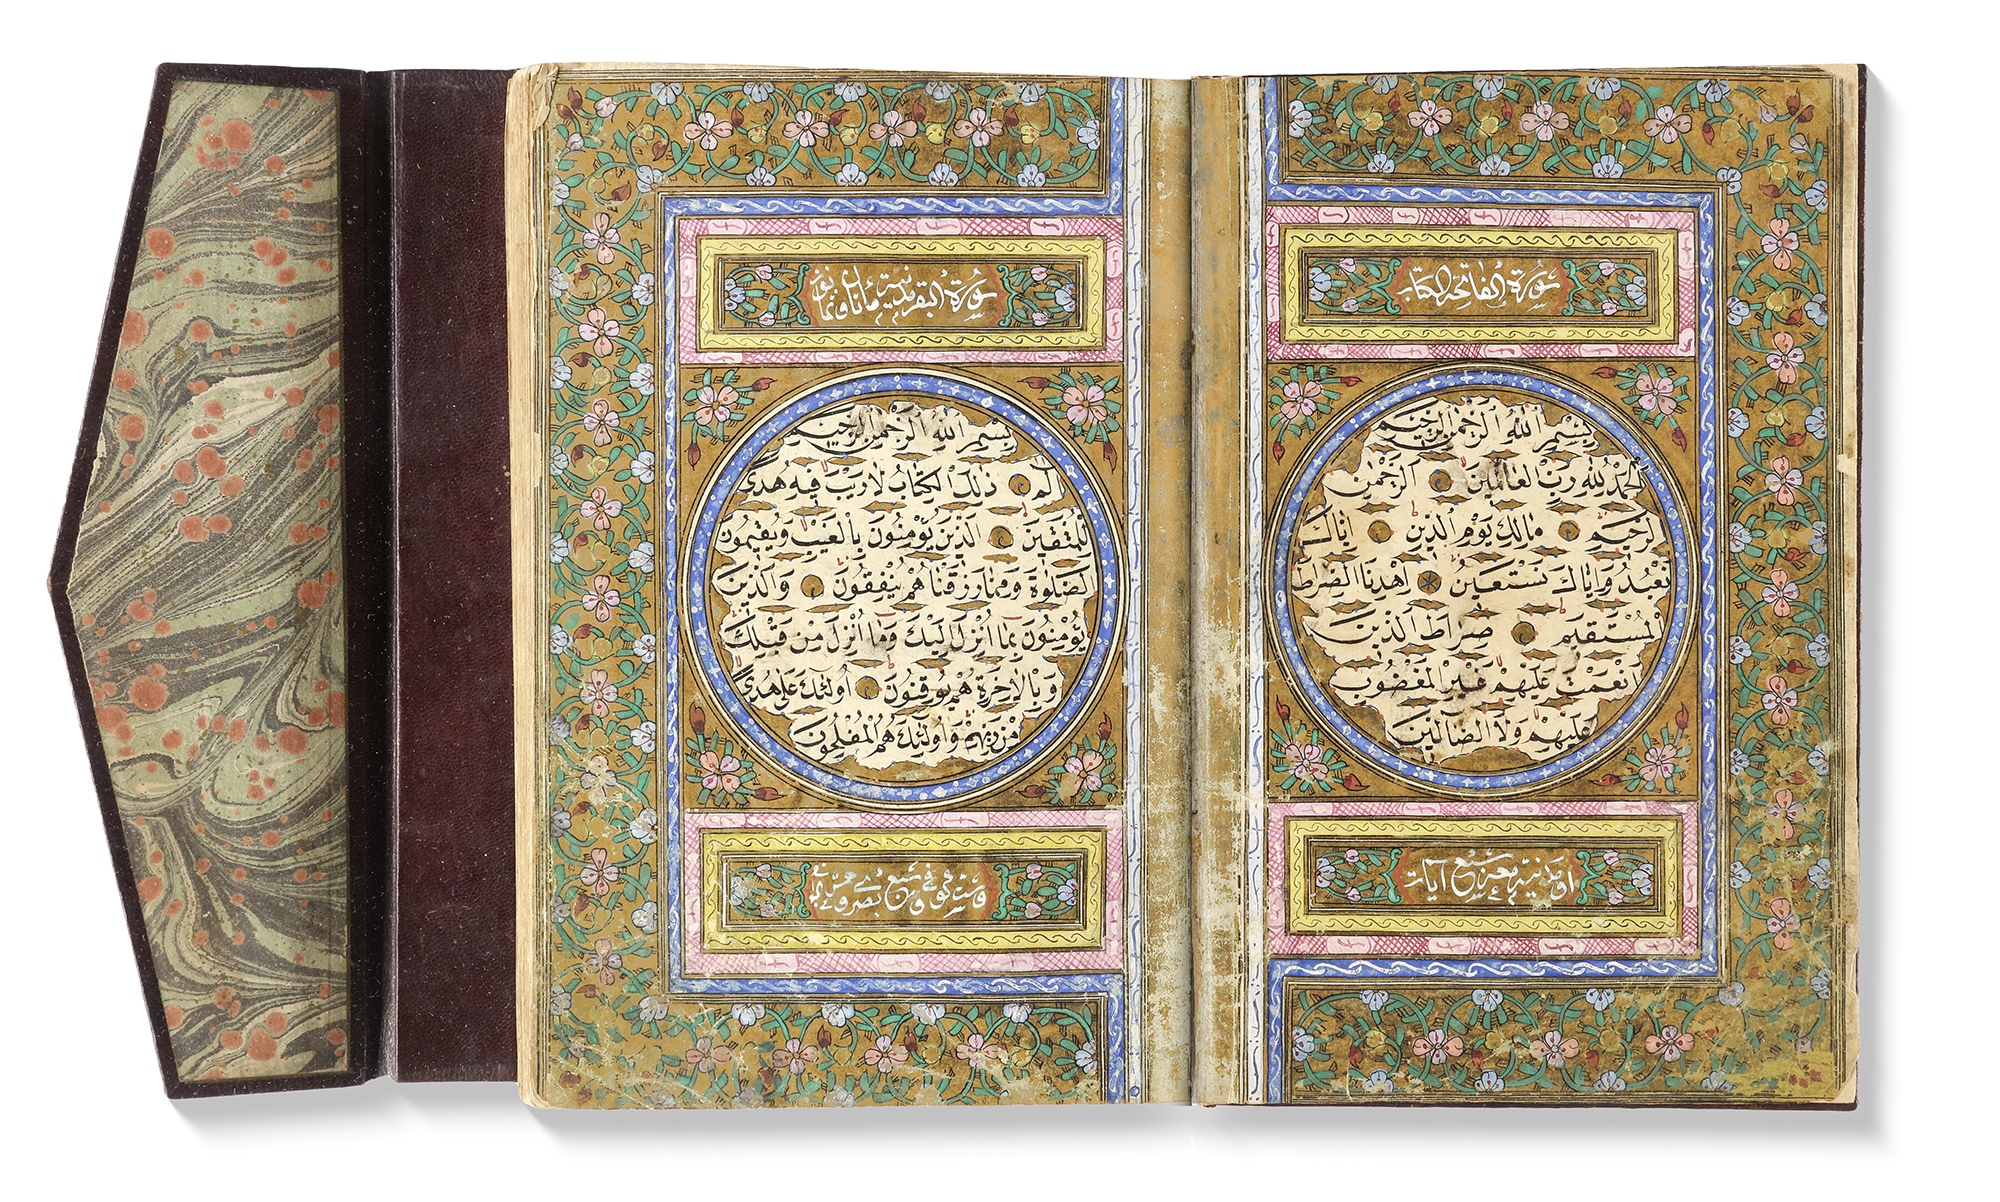 سُورَةُ الفَاتِحَةِ الكِتَابِ
بِسْمِ اللّٰهِ الرَّحْمٰنِ الرَّحِيمِ
اَلْحَمْدُ لِلّٰهِ رَبِّ الْعَالَمِينَ الرَّحْمٰنِ
الرَّحِيمِ مَالِكِ يَوْمِ الدِّينِ اِيَّاكَ
نَعْبُدُ وَاِيَّاكَ نَسْتَعِينُ اِهْدِنَا الصِّرَاطَ
الْمُسْتَقِيمَ صِرَاطَ الَّذِينَ
اَنْعَمْتَ عَلَيْهِمْ غَيْرِ الْمَغْضُوبِ
عَلَيْهِمْ وَلَا الضَّالِّينَ
او مدنية سبع آيات
سُورَةُ البقرة مدنية مائتان وثمانون
بِسْمِ اللّٰهِ الرَّحْمٰنِ الرَّحِيمِ
الٓمٓ ذٰلِكَ الْكِتَابُ لَا رَيْبَ فِيهِ هُدًى
لِلْمُتَّقِينَ الَّذِينَ يُؤْمِنُونَ بِالْغَيْبِ وَيُقِيمُونَ
الصَّلٰوةَ وَمِمَّا رَزَقْنَاهُمْ يُنْفِقُونَ وَالَّذِينَ
يُؤْمِنُونَ بِمَا اُنْزِلَ اِلَيْكَ وَمَا اُنْزِلَ مِنْ قَبْلِكَ
وَبِالْاٰخِرَةِ هُمْ يُوقِنُونَ اُولٰٓئِكَ عَلٰى هُدًى
مِنْ رَبِّهِمْ وَاُولٰٓئِكَ هُمُ الْمُفْلِحُونَ
وست كوفي وسبع بصري